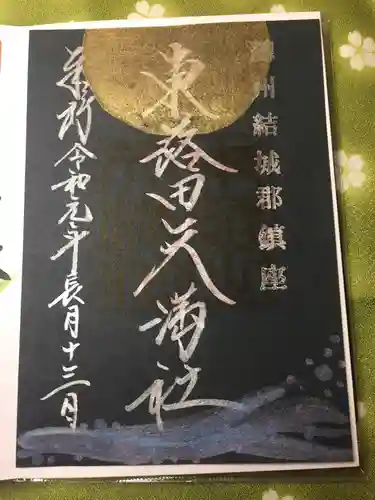 州結城郡鎮座
東蕗田天満社
奉拝令和元年長月十三日